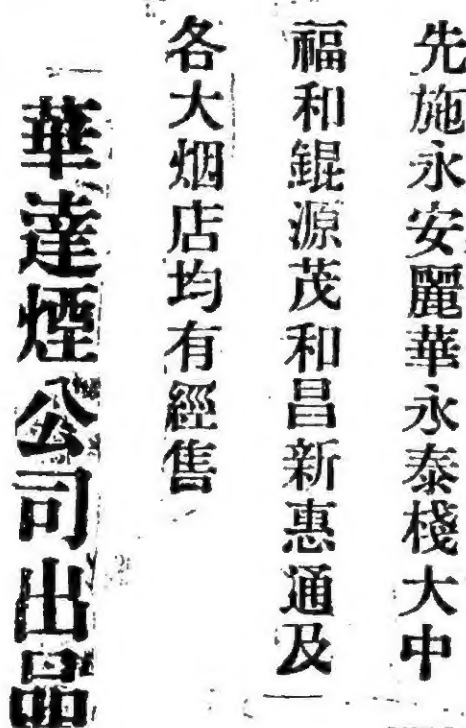 先施永安麗華永泰棧大中
福和錕源茂和昌新惠通及
各大烟店均有經售
華達煙公司出品